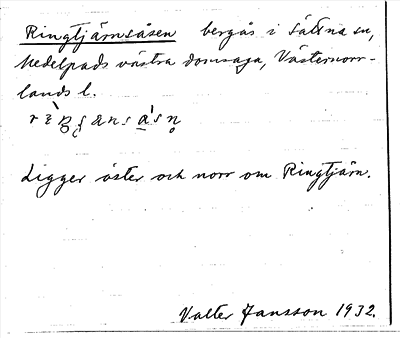 Ringtjärnsåsen bergås i Sättna sn,
Medelpads västra domsaga, Västernorr-
lands l.
Ligger öster och norr om Ringtjärn.
Valter Jansson 1932.